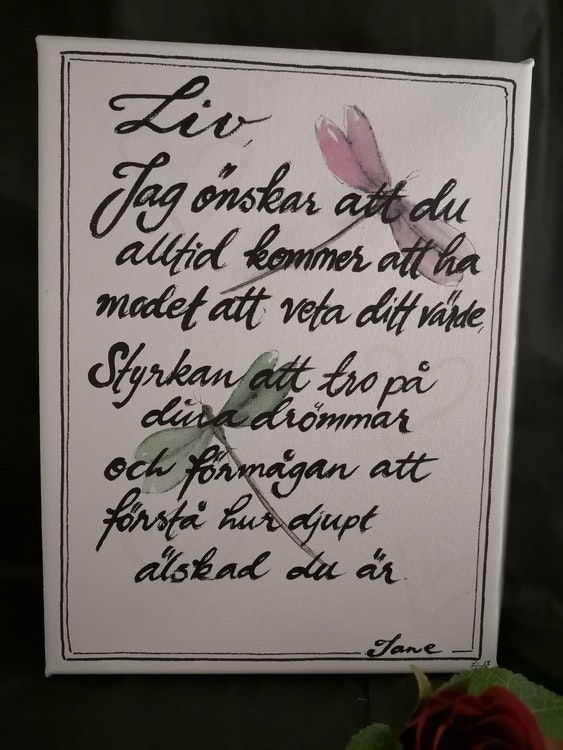 Liv,
Jag önskar att du
alltid kommer att ha
modet att veta ditt värde,
Styrkan att tro på
dina drömmar
och förmågan att
förstå hur djupt
älskad du är.
Jane